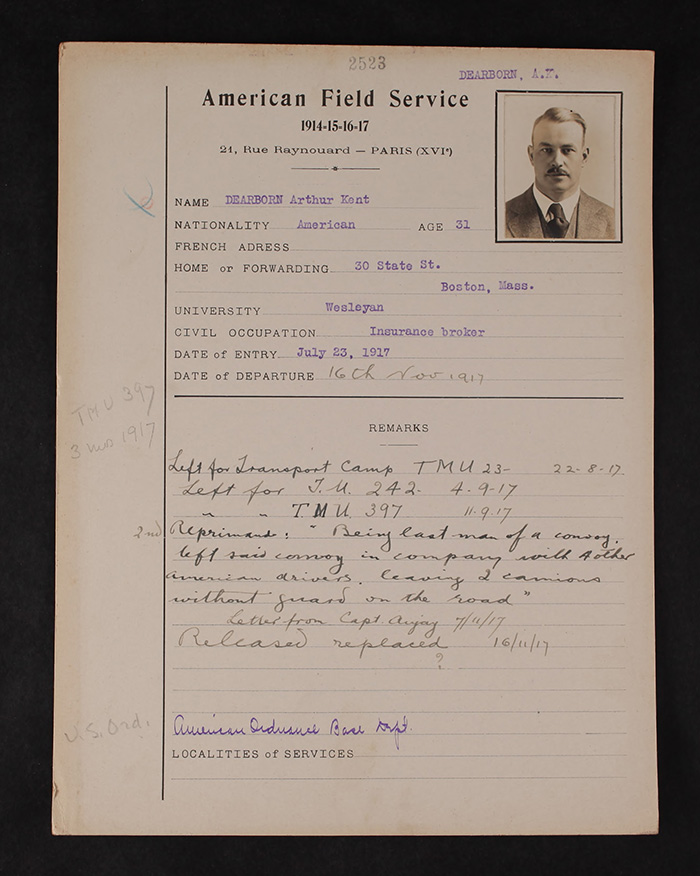 2523
DEARBORN, A.K.
American Field Service
1914-15-16-17
21, Rue Raynouard — PARIS (XVIe)
NAME DEARBORN Arthur Kent
NATIONALITY American AGE 31
FRENCH ADRESS
HOME or FORWARDING 30 State St.
Boston, Mass.
UNIVERSITY Wesleyan
CIVIL OCCUPATION Insurance broker
DATE of ENTRY July 23, 1917
DATE of DEPARTURE 16th Nov 1917
TMU 397
3 mos 1917
REMARKS
Left for Transport Camp TMU 23- 22-8-17.
Left for T.U. 242. 4-9-17
" " T.M.U. 397 11-9-17
2nd Reprimand: "Being last man of a convoy,
left said convoy in company with 4 other
American drivers, leaving 2 camions
without guard on the road"
Letter from Capt. 7/11/17
Released replaced 16/11/17
?
U.S. Ord.
American Ordnance Base Dep't.
LOCALITIES of SERVICES